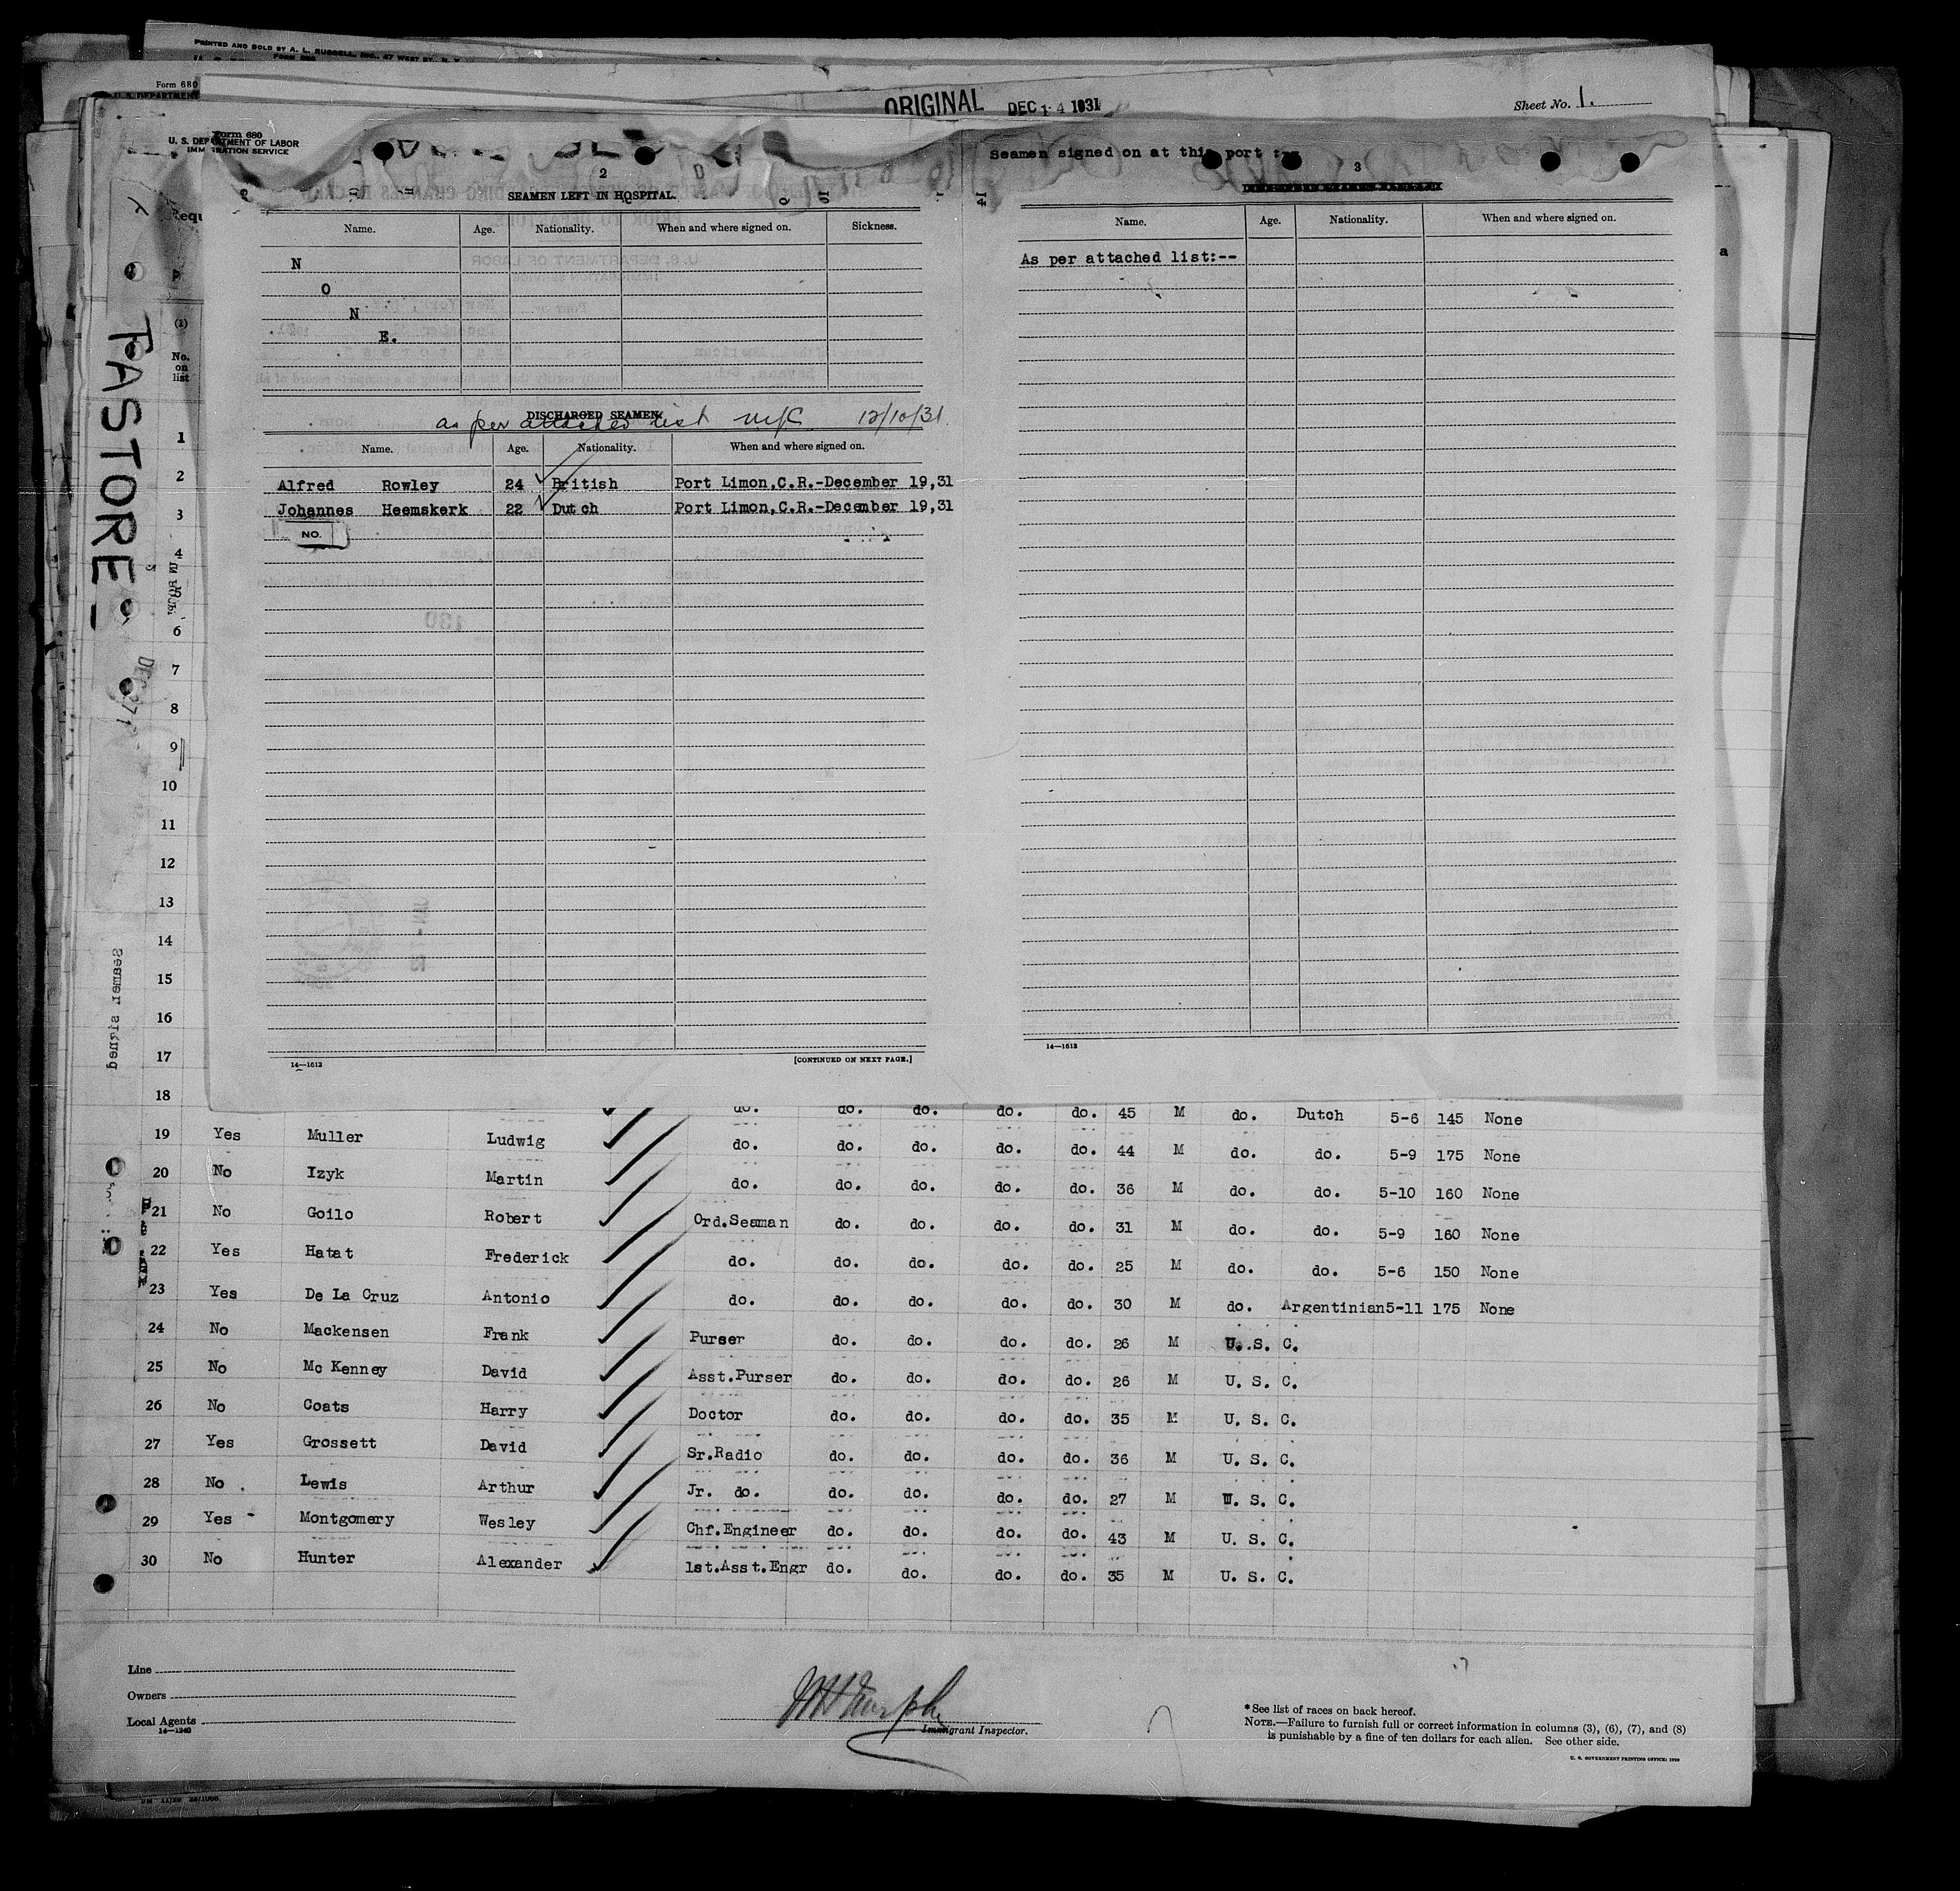 PRINTED AND SOLD BY A. L. RUSSELL, INC., 47 WEST ST., N. Y.
Form 680
U. S. DEPARTMENT
ORIGINAL DEC 14 1931
Sheet No. 1.
Form 680
U. S. DEPARTMENT OF LABOR
IMMIGRATION SERVICE
TASTORE
2
SEAMEN LEFT IN HOSPITAL.
Name. Age. Nationality. When and where signed on. Sickness.
N
O
N
E.
DISCHARGED SEAMEN.
as per attached list 12/10/31
Name. Age. Nationality. When and where signed on.
Alfred Rowley 24 British Port Limon,C.R.-December 19,31
Johannes Heemskerk 22 Dutch Port Limon,C.R.-December 19,31
NO.
14—1613
[CONTINUED ON NEXT PAGE.]
Seamen signed on at this port :--
3
Name. Age. Nationality. When and where signed on.
As per attached list:--
14—1613
(1)
No. on list
1
2
3
4
5
6
7
8
9
10
11
12
13
14
15
16
17
18 do. do. do. do. do. 45 M do. Dutch 5-6 145 None
19 Yes Muller Ludwig do. do. do. do. do. 44 M do. do. 5-9 175 None
20 No Izyk Martin do. do. do. do. do. 36 M do. do. 5-10 160 None
21 No Goilo Robert Ord.Seaman do. do. do. do. 31 M do. do. 5-9 160 None
22 Yes Hatat Frederick do. do. do. do. do. 25 M do. do. 5-6 150 None
23 Yes De La Cruz Antonio do. do. do. do. do. 30 M do. Argentinian 5-11 175 None
24 No Mackensen Frank Purser do. do. do. do. 26 M U. S. C.
25 No Mc Kenney David Asst.Purser do. do. do. do. 26 M U. S. C.
26 No Coats Harry Doctor do. do. do. do. 35 M U. S. C.
27 Yes Grossett David Sr.Radio do. do. do. do. 36 M U. S. C.
28 No Lewis Arthur Jr. do. do. do. do. do. 27 M U. S. C.
29 Yes Montgomery Wesley Chf.Engineer do. do. do. do. 43 M U. S. C.
30 No Hunter Alexander 1st.Asst.Engr do. do. do. do. 35 M U. S. C.
Line
Owners
Local Agents
14—1240
Immigrant Inspector.
* See list of races on back hereof.
NOTE.—Failure to furnish full or correct information in columns (3), (6), (7), and (8)
is punishable by a fine of ten dollars for each alien. See other side.
U. S. GOVERNMENT PRINTING OFFICE: 1929